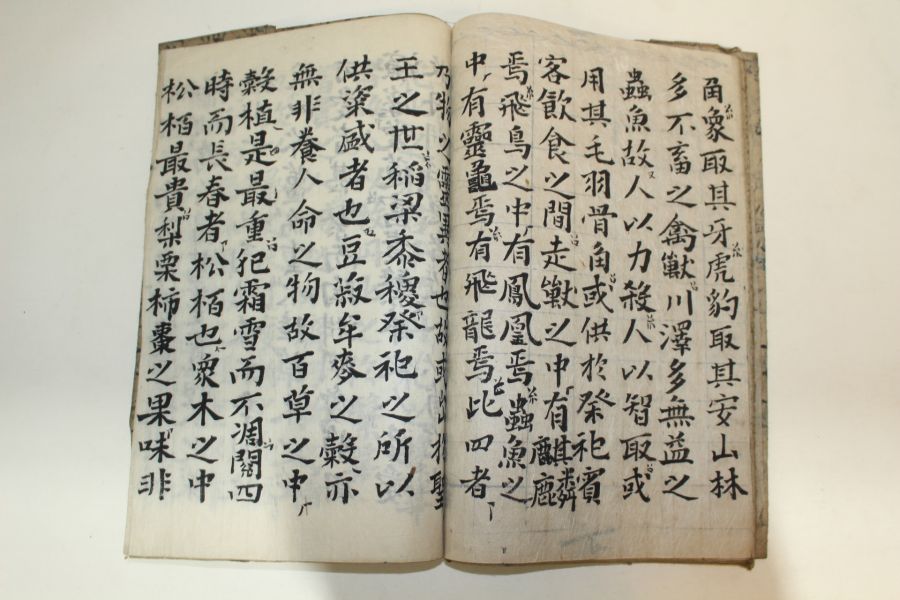 角象取其牙虎豹取其安山林
多不畜之禽獸川澤多無益之
蟲魚故人以力殺人以智取或
用其毛羽骨角或供於祭祀賓
客飮食之間走獸之中有麒麟
焉飛鳥之中有鳳凰焉蟲魚之
中有靈龜焉有飛龍焉此四者
乃物之靈異者也故或出於聖
王之世稻梁黍稷祭祀之所以
供粢盛者也豆菽牟麥之糓亦
無非養人命之物故百草之中
糓植是最重犯霜雪而不凋閱四
時而長春者松栢也衆木之中
松栢最貴梨栗柿棗之果味非